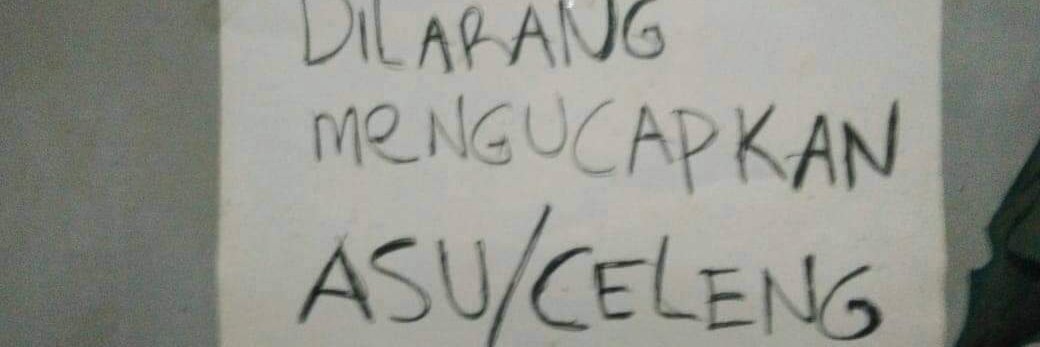 DILARANG
MeNGUCAPKAN
ASU/CELENG